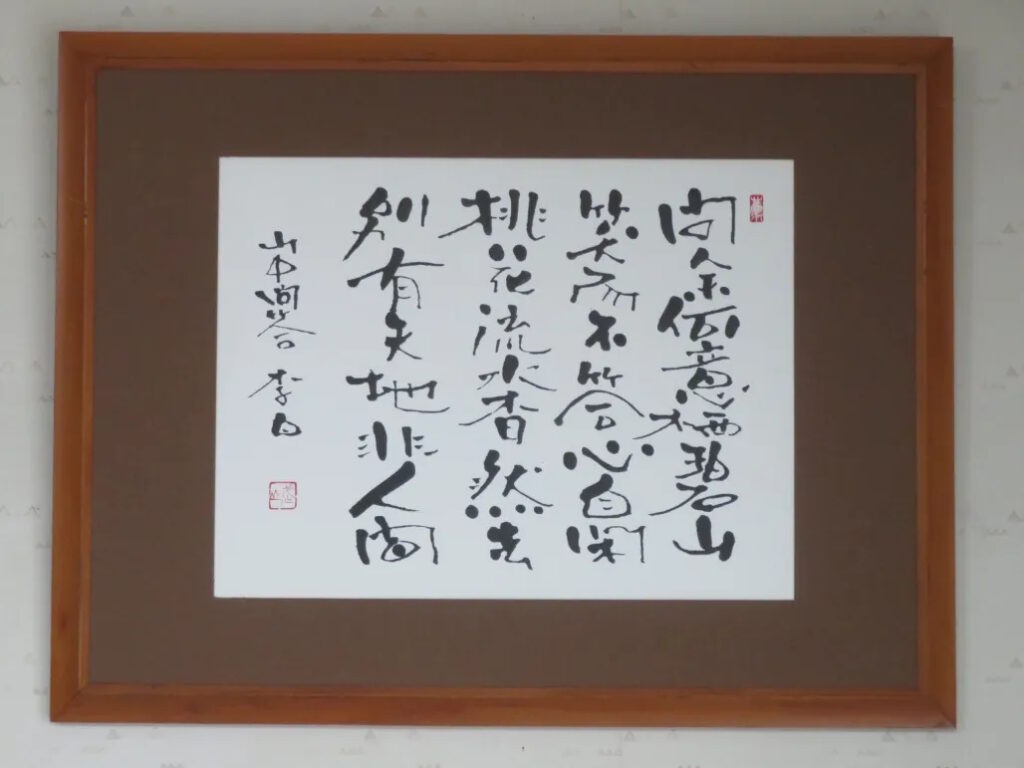 問余何意栖碧山
笑而不答心自閑
桃花流水杳然去
別有天地非人間
山中問答 李白